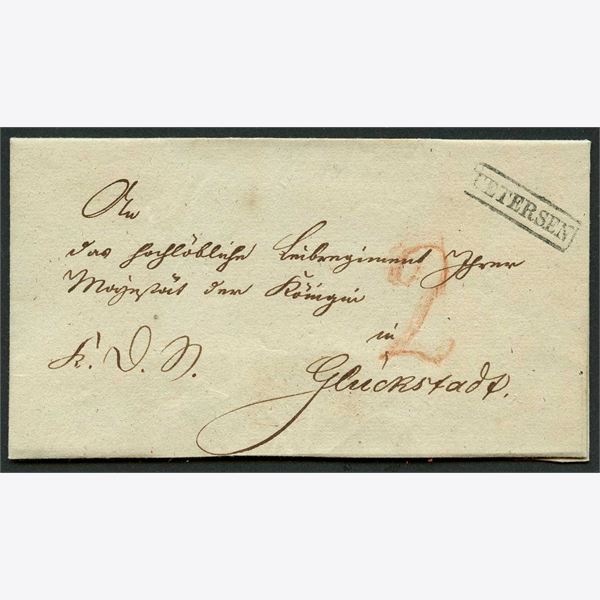 UETERSEN
An
das hochlöbliche Leibregiment Ihrer
Majestät der Königin
2
in
K. D. S.
Glückstadt.